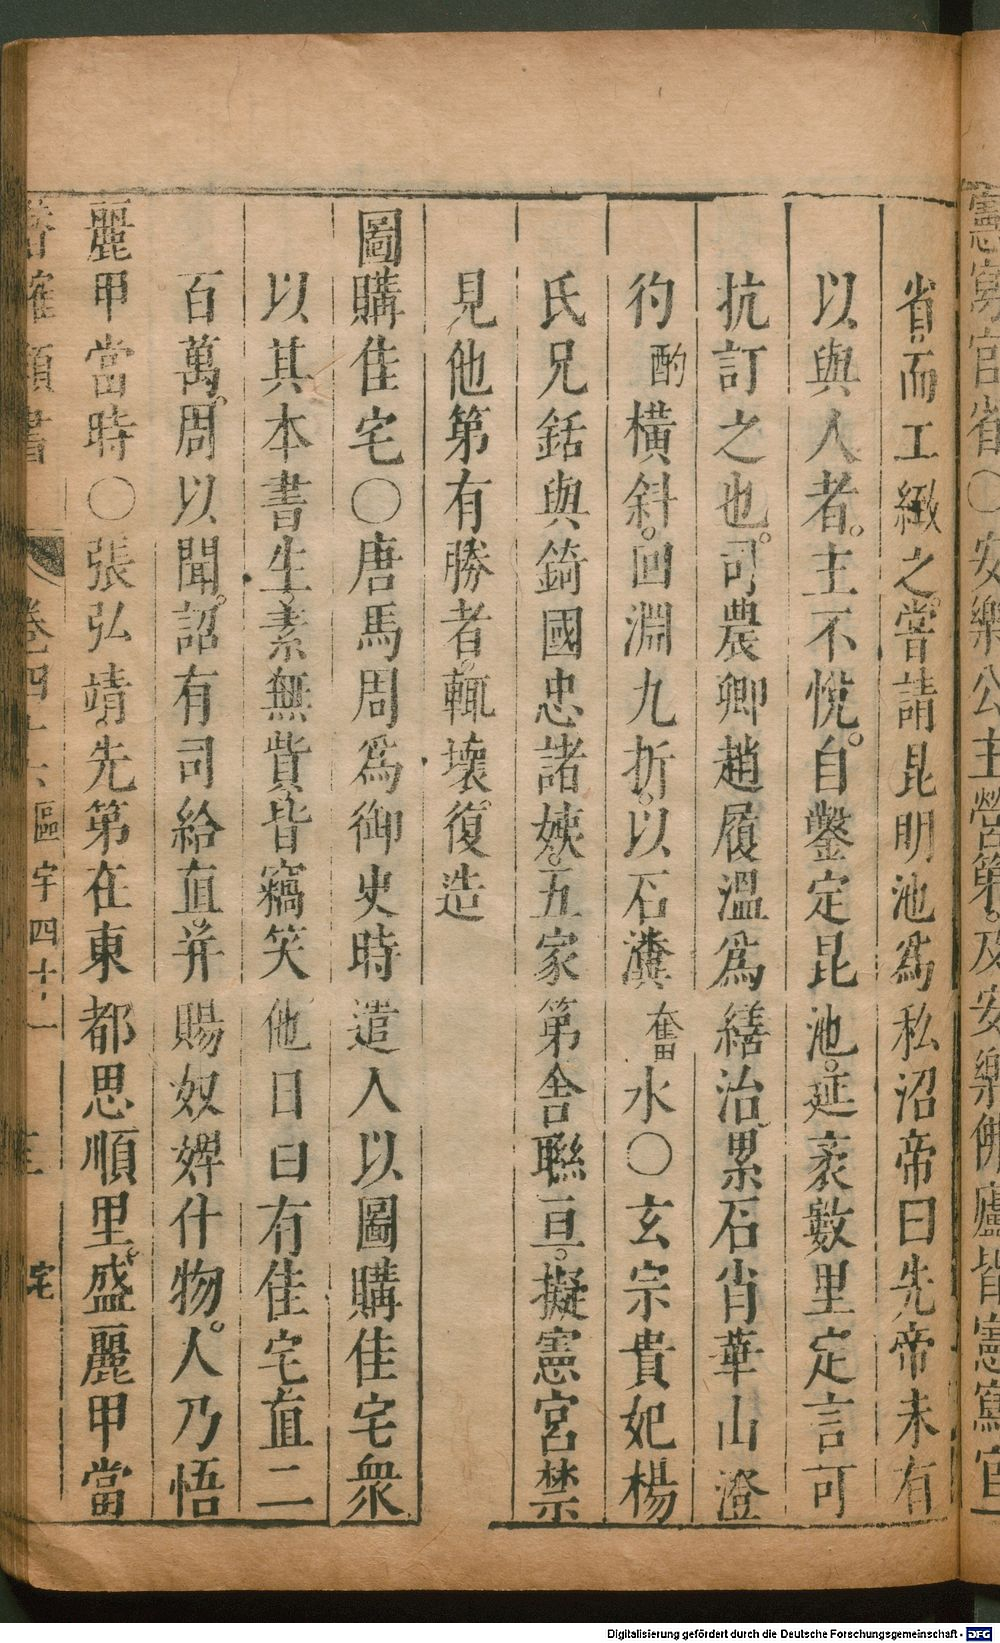 憲寫官省○安樂公主營第及安樂佛廬皆憲寫官
省而工緻之嘗請昆明池爲私沼帝曰先帝未有
以與人者。主不悅。自鑿定昆池。延袤數里定言可
抗訂之也。司農卿趙履溫爲繕治累石肖華山澄
彴酌橫斜。回淵九折。以石瀵奮水○玄宗貴妃楊
氏兄銛與錡國忠諸姨。五家第舍聯亘。擬憲宮禁
見他第有勝者。輒壞復造
圖購佳宅○唐馬周爲御史時遣人以圖購佳宅衆
以其本書生素無貲皆竊笑他日曰有佳宅直二
百萬。周以聞。詔有司給直并賜奴婢什物。人乃悟
麗甲當時○張弘靖先第在東都思順里盛麗甲當
類書 卷四十六 區宇四十一 宅
Digitalisierung gefördert durch die Deutsche Forschungsgemeinschaft - DFG